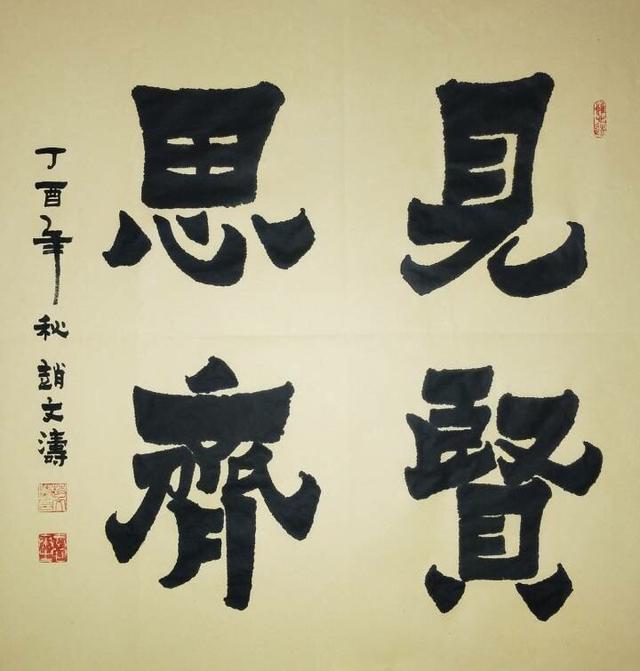 見賢
思齊
丁酉年秋趙文濤